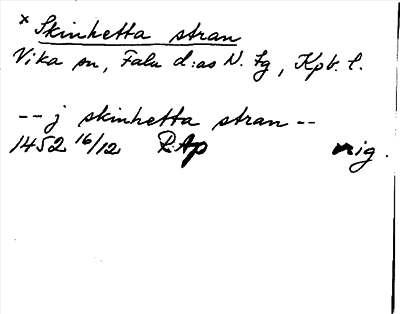 × Skinhetta stran
Vika sn, Falu d:as N. fg, Kpb. l.
-- j skinhetta stran --
1452 16/12 RAp orig.